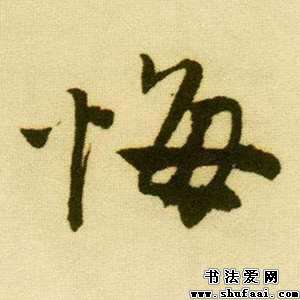 悔
书法爱网
www.shufaai.com